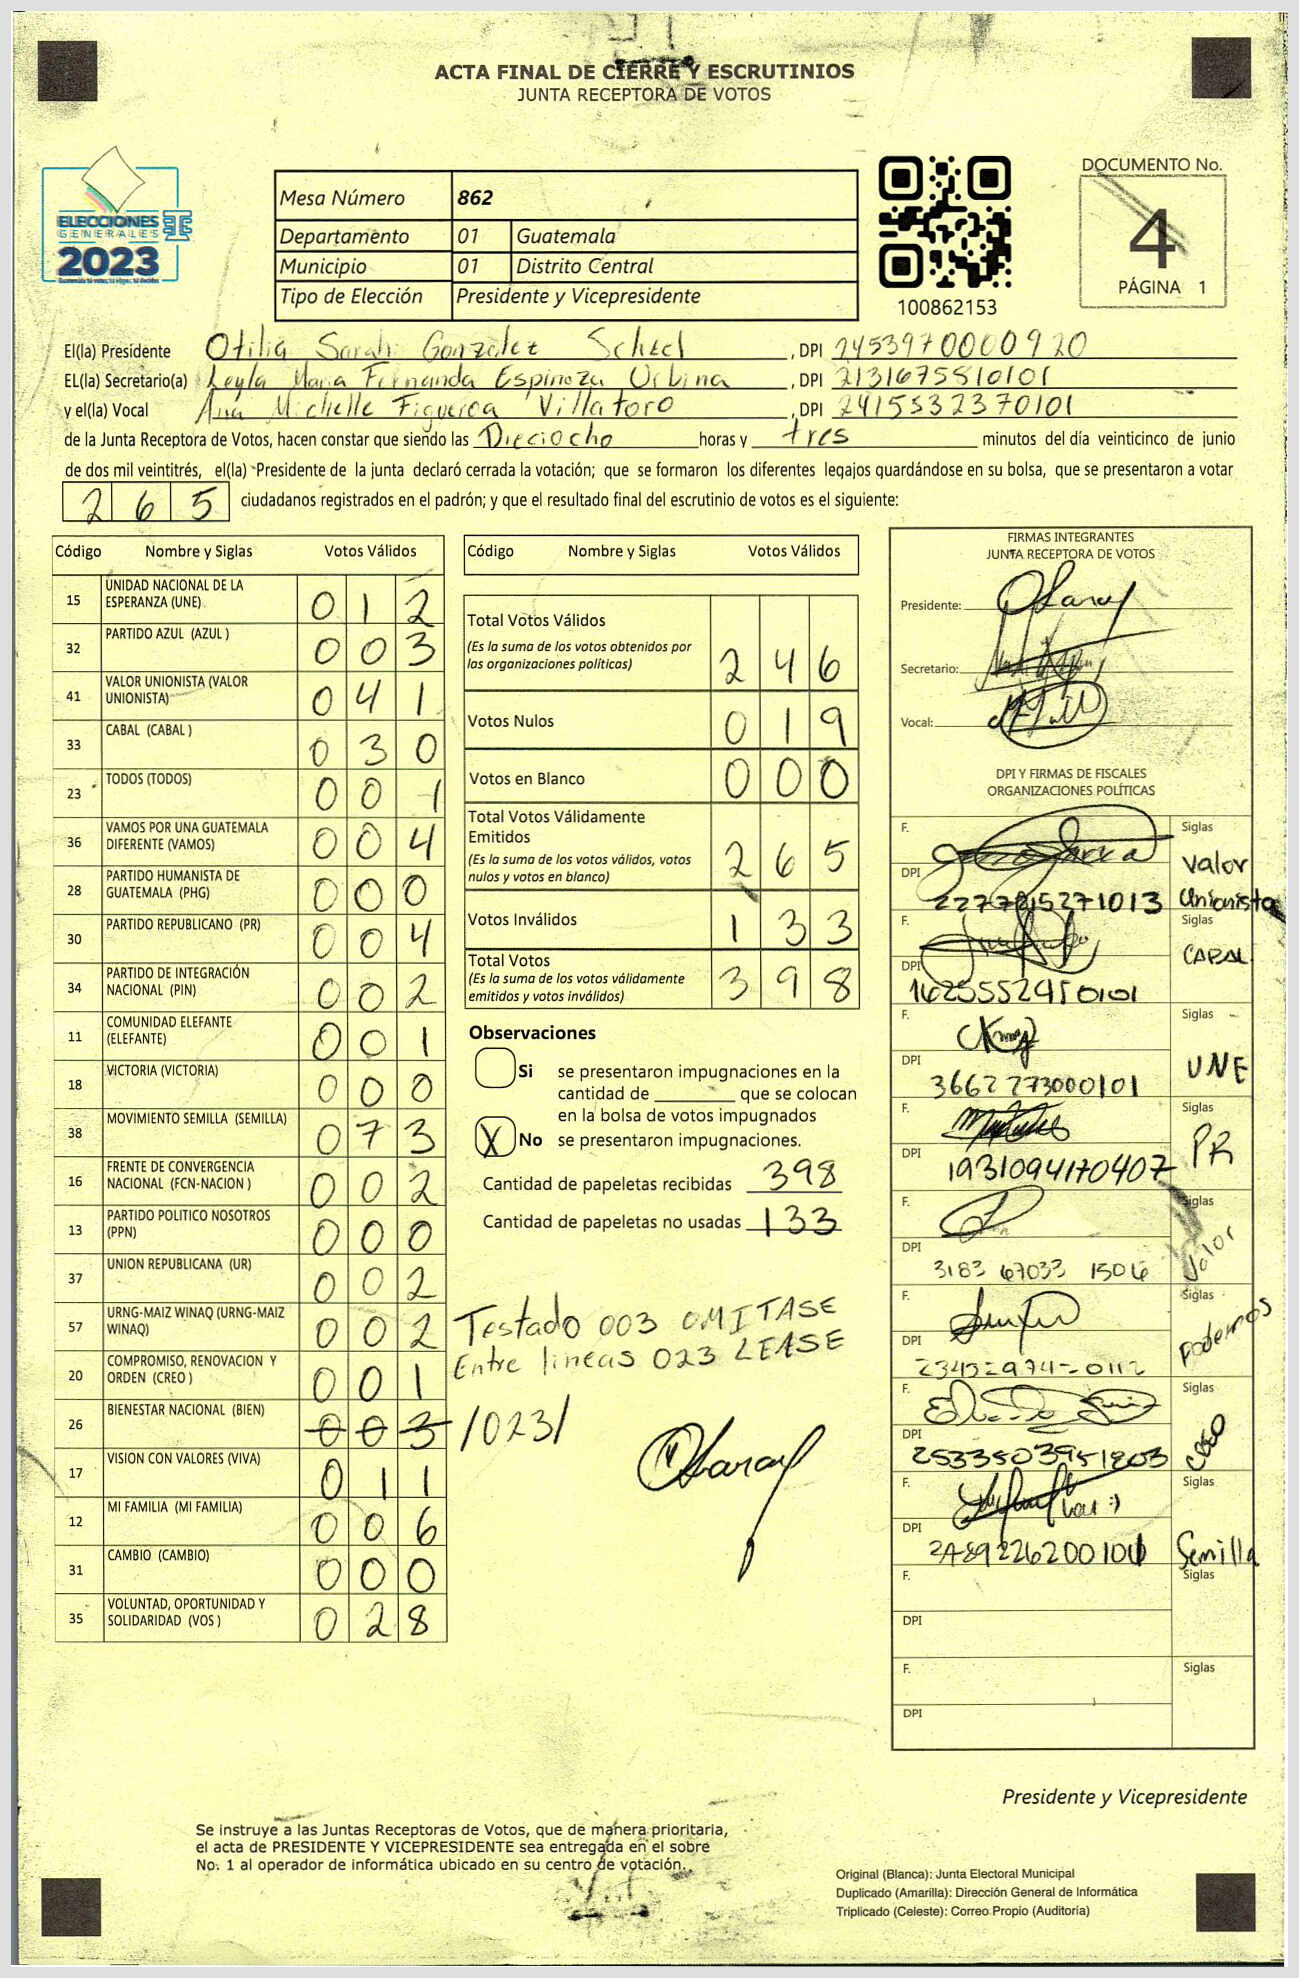 ACTA FINAL DE CIERRE Y ESCRUTINIOS
JUNTA RECEPTORA DE VOTOS
ELECCIONES
GENERALES
2023
Mesa Número 862
Departamento 01 Guatemala
Municipio 01 Distrito Central
Tipo de Elección Presidente y Vicepresidente
100862153
DOCUMENTO No.
4
PÁGINA 1
El(la) Presidente Otilia Sarah Gonzalez Scheel , DPI 2453970000920
EL(la) Secretario(a) Leyla Maria Fernanda Espinoza Urbina , DPI 2131675810101
y el(la) Vocal Ana Michelle Figueroa Villatoro , DPI 2415532370101
de la Junta Receptora de Votos, hacen constar que siendo las Dieciocho horas y tres minutos del día veinticinco de junio
de dos mil veintitrés, el(la) Presidente de la junta declaró cerrada la votación; que se formaron los diferentes legajos quardándose en su bolsa, que se presentaron a votar
265 ciudadanos registrados en el padrón; y que el resultado final del escrutinio de votos es el siguiente:
Código Nombre y Siglas Votos Válidos
15 UNIDAD NACIONAL DE LA ESPERANZA (UNE) 012
32 PARTIDO AZUL (AZUL ) 003
41 VALOR UNIONISTA (VALOR UNIONISTA) 041
33 CABAL (CABAL ) 030
23 TODOS (TODOS) 001
36 VAMOS POR UNA GUATEMALA DIFERENTE (VAMOS) 004
28 PARTIDO HUMANISTA DE GUATEMALA (PHG) 000
30 PARTIDO REPUBLICANO (PR) 004
34 PARTIDO DE INTEGRACIÓN NACIONAL (PIN) 002
11 COMUNIDAD ELEFANTE (ELEFANTE) 001
18 VICTORIA (VICTORIA) 000
38 MOVIMIENTO SEMILLA (SEMILLA) 073
16 FRENTE DE CONVERGENCIA NACIONAL (FCN-NACION ) 002
13 PARTIDO POLITICO NOSOTROS (PPN) 000
37 UNION REPUBLICANA (UR) 002
57 URNG-MAIZ WINAQ (URNG-MAIZ WINAQ) 002
20 COMPROMISO, RENOVACION Y ORDEN (CREO ) 001
26 BIENESTAR NACIONAL (BIEN) 003 /023/
17 VISION CON VALORES (VIVA) 011
12 MI FAMILIA (MI FAMILIA) 006
31 CAMBIO (CAMBIO) 000
35 VOLUNTAD, OPORTUNIDAD Y SOLIDARIDAD (VOS ) 028
Código Nombre y Siglas Votos Válidos
Total Votos Válidos
(Es la suma de los votos obtenidos por
las organizaciones políticas) 246
Votos Nulos 019
Votos en Blanco 000
Total Votos Válidamente
Emitidos
(Es la suma de los votos válidos, votos
nulos y votos en blanco) 265
Votos Inválidos 133
Total Votos
(Es la suma de los votos válidamente
emitidos y votos inválidos) 398
Observaciones
Si se presentaron impugnaciones en la
cantidad de ________ que se colocan
en la bolsa de votos impugnados
X No se presentaron impugnaciones.
Cantidad de papeletas recibidas 398
Cantidad de papeletas no usadas 133
Testado 003 OMITASE
Entre lineas 023 LEASE
FIRMAS INTEGRANTES
JUNTA RECEPTORA DE VOTOS
Presidente:
Secretario:
Vocal:
DPI Y FIRMAS DE FISCALES
ORGANIZACIONES POLÍTICAS
F. Siglas Valor Unionista
DPI 2277215271013
F. Siglas CABAL
DPI
F. Siglas UNE
DPI 3662273000101
F. Siglas PR
DPI 1931094170407
F. Siglas Valor
DPI 3183 67033 1506
F. Siglas podemos
DPI
F. Siglas
DPI
F. Siglas Semilla
DPI
F. Siglas
DPI
F. Siglas
DPI
Presidente y Vicepresidente
Se instruye a las Juntas Receptoras de Votos, que de manera prioritaria,
el acta de PRESIDENTE Y VICEPRESIDENTE sea entregada en el sobre
No. 1 al operador de informática ubicado en su centro de votación.
Original (Blanca): Junta Electoral Municipal
Duplicado (Amarilla): Dirección General de Informática
Triplicado (Celeste): Correo Propio (Auditoría)